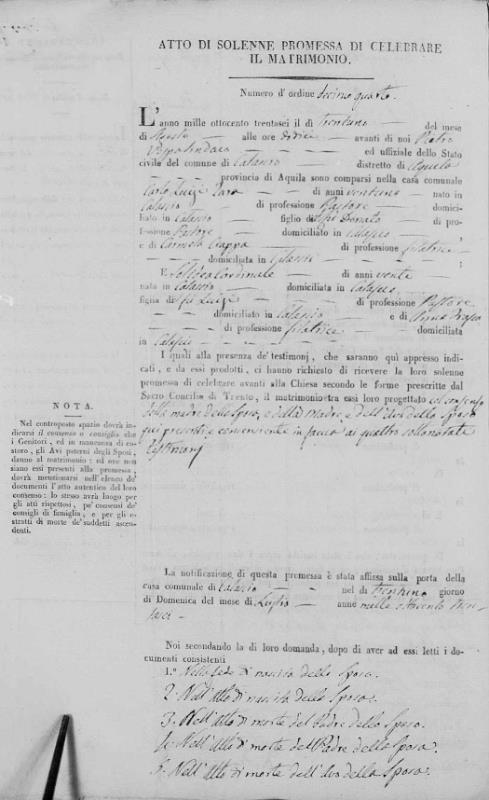 ATTO DI SOLENNE PROMESSA DI CELEBRARE
IL MATRIMONIO.
Numero d' ordine decimo quarto.
L'anno mille ottocento trentasei il dì trentuno — del mese
di Agosto — alle ore dodici — avanti di noi Pietro
— ed uffiziale dello Stato
civile del comune di Calascio — distretto di Aquila
— provincia di Aquila sono comparsi nella casa comunale
Carlo Luigi — di anni ventuno — nato in
Calascio — di professione Pastore — domici-
liato in Calascio — figlio del fu Donato — di pro-
fessione Pastore — domiciliato in Calascio —
e di Carmela — di professione filatrice —
— domiciliata in Calascio — ;
E — di anni venti —
nata in Calascio — domiciliata in Calascio —
figlia del fu Luigi — di professione Pastore
— domiciliato in Calascio — e di Anna
— di professione filatrice — domiciliata
in Calascio —
I quali alla presenza de' testimonj, che saranno quì appresso indi-
cati, e da essi prodotti, ci hanno richiesto di ricevere la loro solenne
promessa di celebrare avanti alla Chiesa secondo le forme prescritte dal
Sacro Concilio di Trento, il matrimonio tra essi loro progettato col consenso
della madre dello Sposo, e della Madre e dell'Avo della Sposa
qui presenti, e consenziente in faccia ai quattro sottonotati
testimonj
NOTA.
Nel controposto spazio dovrà in-
dicarsi il consenso o consiglio che
i Genitori, ed in mancanza di es-
si loro, gli Avi paterni degli Sposi,
danno al matrimonio: ed ove non
siano essi presenti alla promessa,
dovrà mentovarsi nell'elenco de'
documenti l'atto autentico del loro
consenso: lo stesso avrà luogo per
gli atti rispettosi, pe' consensi de'
consigli di famiglia, e per gli e-
stratti di morte de' suddetti ascen-
denti.
La notificazione di questa promessa è stata affissa sulla porta della
casa comunale di Calascio — nel dì trentuno — giorno
di Domenica del mese di Luglio — anno mille ottocento tren-
tasei —
Noi secondando la di loro domanda, dopo di aver ad essi letti i do-
cumenti consistenti
1.° Nella fede di nascita dello Sposo.
2. Nell'Atto di nascita della Sposa.
3. Nell'Atto di morte del Padre dello Sposo.
4. Nell'Atto di morte del Padre della Sposa.
5. Nell'Atto di morte dell'Avo dello Sposo.